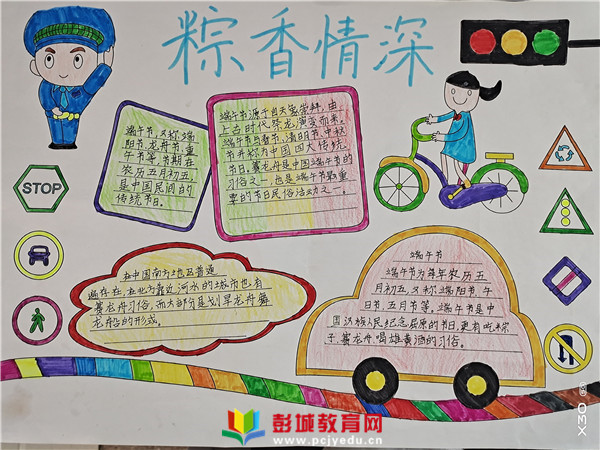 粽香情深
端午节,又称端
阳节,龙舟节,重
午节等,节期在
农历五月初五,
是中国民间的
传统节日。
端午节源于自天象崇拜,由
上古时代祭龙演变而来。
端午节与春节、清明节、中秋
节并称为中国四大传统
节日。赛龙舟是中国端午节的
习俗之一,也是端午节最重
要的节日民俗活动之一。
STOP
在中国南方地区普遍
存在,在北方靠近河水的城市也有
赛龙舟习俗,而大部分是划旱龙舟舞
龙船的形式。
端午节
端午节为每年农历五
月初五,又称端阳节,午
日节,五月节等。端午节是中
国汉族人民纪念屈原的节日,更有吃粽
子,赛龙舟,喝雄黄酒的习俗。
彭城教育网
www.pcjyedu.cn
X30